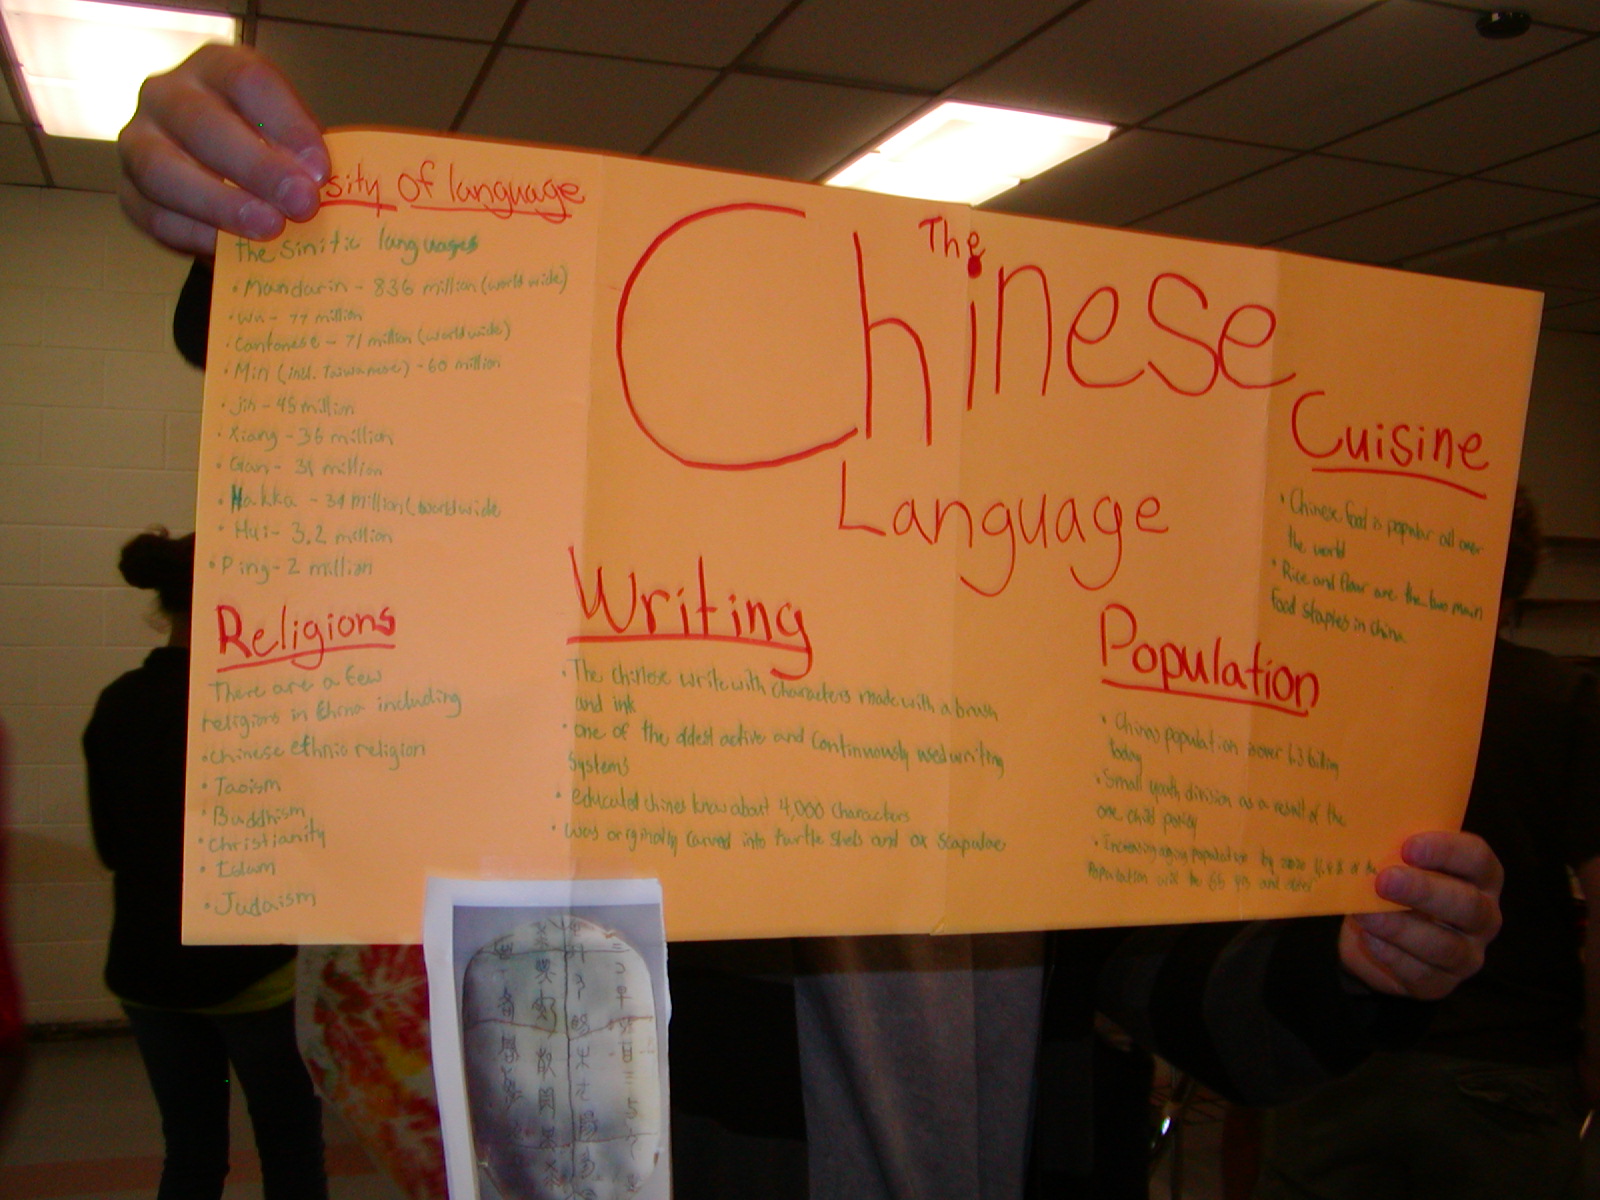 sity of language
the sinitic languages
• Mandarin - 836 million (world wide)
• Wu - 77 million
• Cantonese - 71 million (worldwide)
• Min (incl. Taiwanese) - 60 million
• Jin - 45 million
• Xiang - 36 million
• Gan - 31 million
• Hakka - 34 million (worldwide
• Hui - 3.2 million
• Ping - 2 million
Religions
There are a few
religions in China including
• chinese ethnic religion
• Taoism
• Buddhism
• Christianity
• Islam
• Judaism
The
Chinese
Language
Writing
• The chinese write with characters made with a brush
and ink
• one of the oldest active and continuously used writing
systems
• educated chines know about 4,000 characters
• was originally carved into turtle shels and ox scapulae
Cuisine
• Chinese food is popular all over
the world
• Rice and flour are the two main
food staples in China
Population
• Chinas population is over 1.3 billion
today
• Small youth division as a result of the
one child policy
• Increasing aging population by 2020 of the
Population will be 65 yrs and older